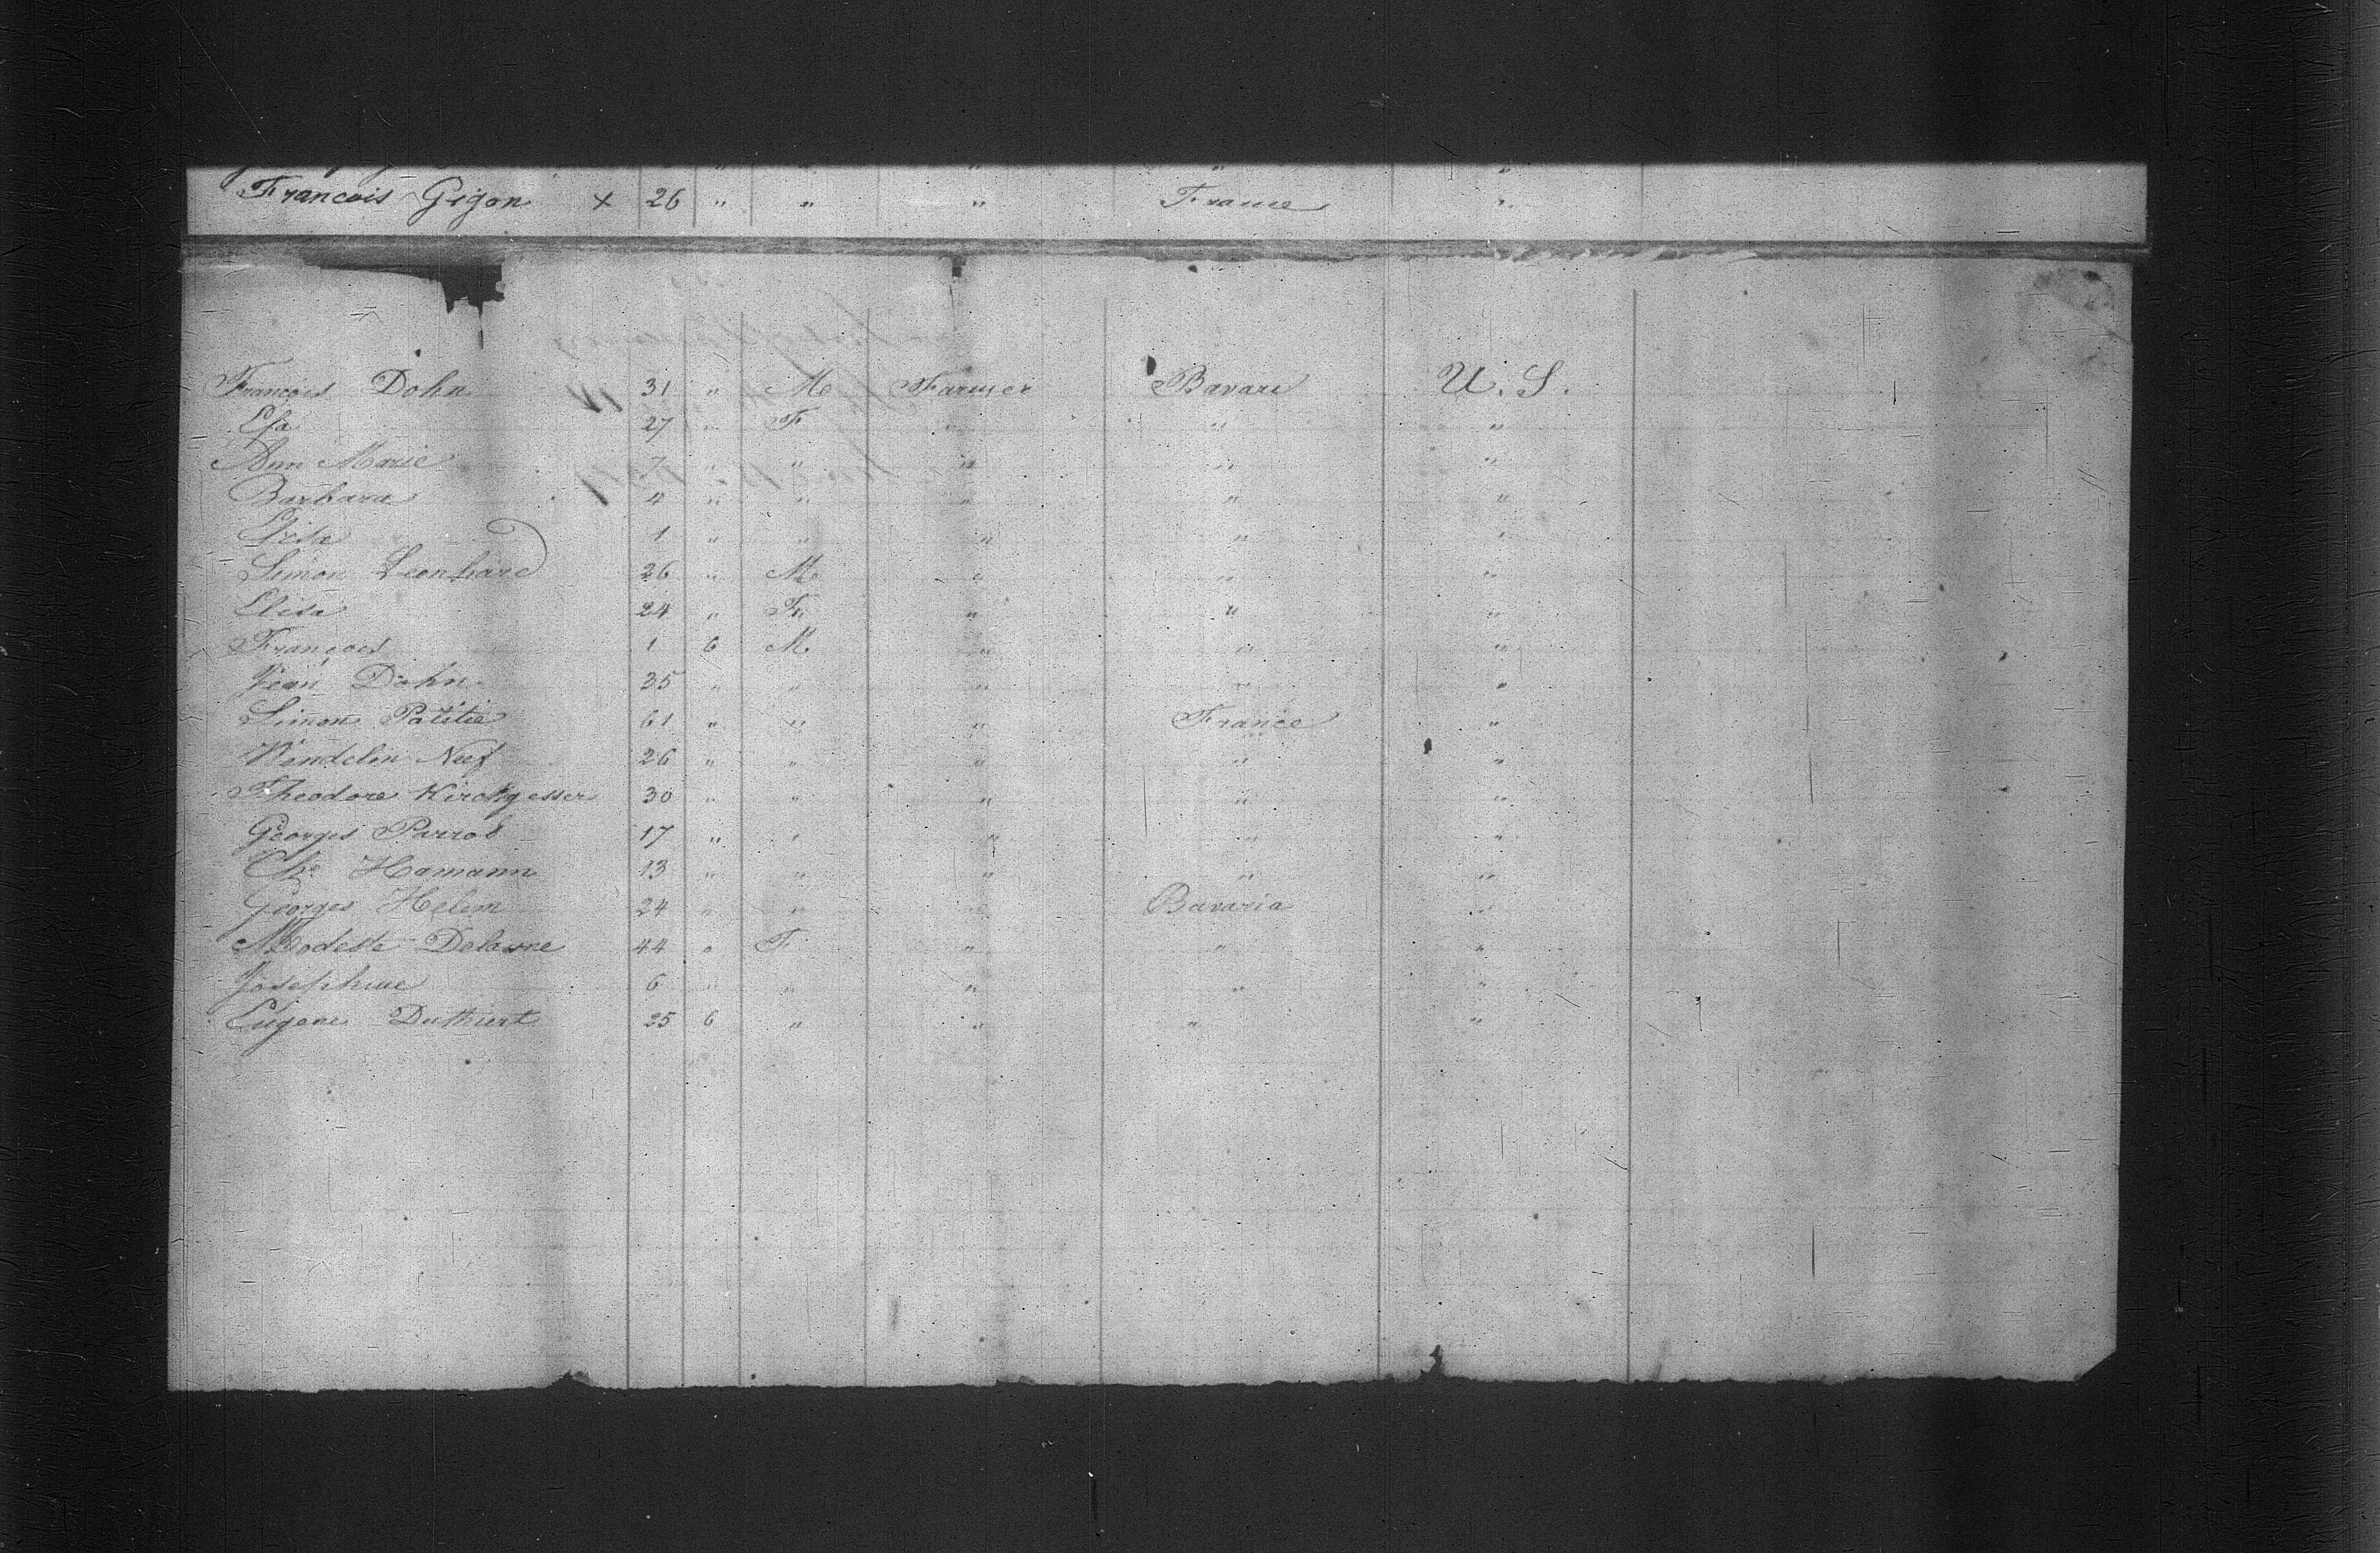 Francois Gigon × 26 " " " France "
François Dohn 31 " M Farmer Bavari U. S.
27 " F " " "
Ann Marie 7 " " " " "
Barbara 4 " " " " "
1 " " " " "
Simon Leonhard 26 " M " " "
Elisa 24 " F " " "
François 1 6 M " " "
Jean Dohn 35 " " " " "
Simon Patitie 61 " " " France "
Wendelin Neef 26 " " " " "
Theodore Kirchgesser 30 " " " " "
Georges Parrot 17 " " " " "
Chs Hamann 13 " " " " "
Georges Helem 24 " " " Bavaria "
Modeste Delaune 44 " F " " "
Josephine 6 " " " " "
Eugene Duthiert 25 6 " " " "